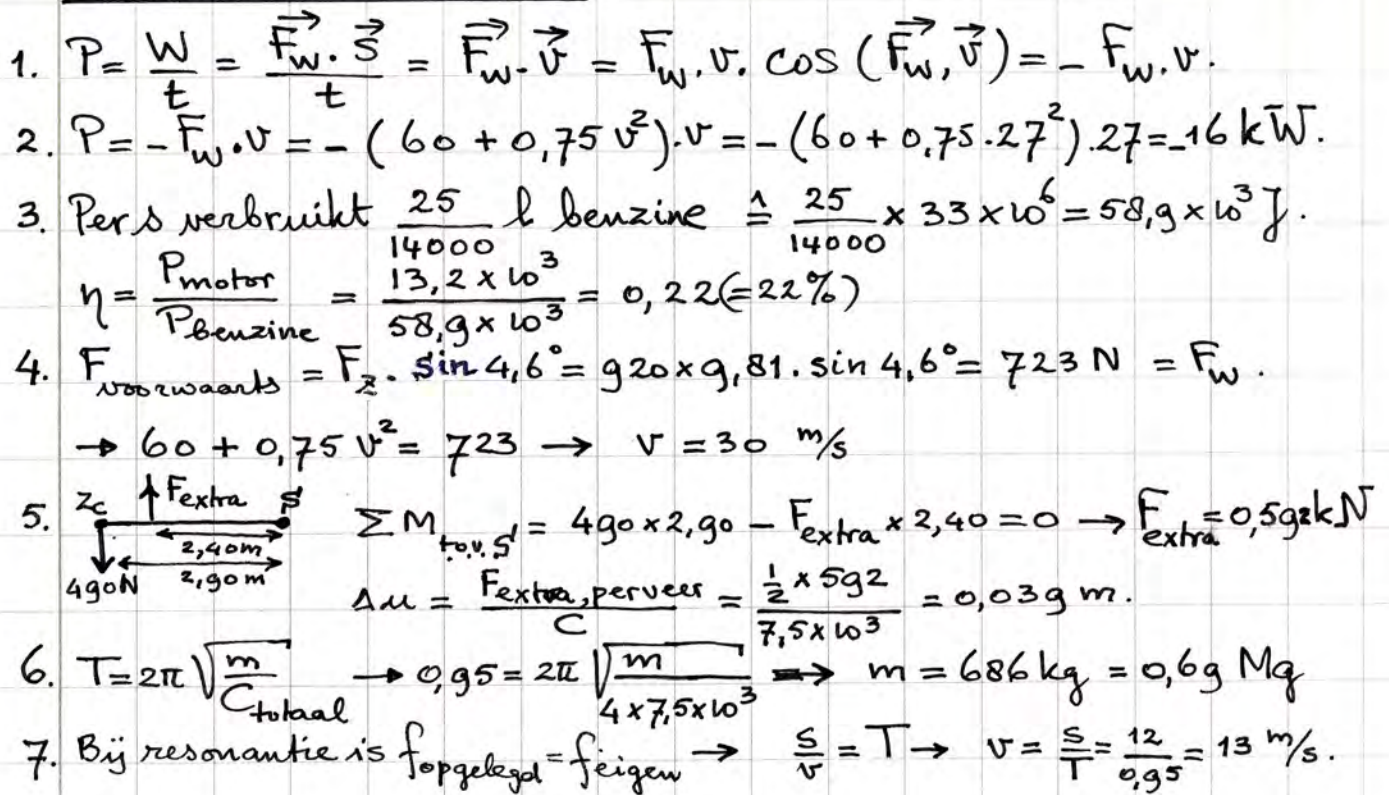 1. P = W/t = F⃗w · s⃗ / t = F⃗w · v⃗ = Fw . v . cos (F⃗w, v⃗) = - Fw . v .
2. P = - Fw . v = - (60 + 0,75 v²) . v = - (60 + 0,75 . 27²) . 27 = -16 kW.
3. Per s verbruikt 25/14000 l benzine ≙ 25/14000 × 33 × 10⁶ = 58,9 × 10³ J.
η = Pmotor / Pbenzine = 13,2 × 10³ / 58,9 × 10³ = 0,22 (=22%)
4. Fvoorwaarts = Fz . sin 4,6° = 920 × 9,81 . sin 4,6° = 723 N = Fw .
→ 60 + 0,75 v² = 723 → v = 30 m/s
5. Zc ↑ Fextra S ΣM t.o.v. S = 490 × 2,90 - Fextra × 2,40 = 0 → Fextra = 0,592 kN
2,40 m
2,90 m
490 N
Δu = Fextra, per veer / C = ½ × 592 / 7,5 × 10³ = 0,039 m.
6. T = 2π √(m / Ctotaal) → 0,95 = 2π √(m / 4 × 7,5 × 10³) ⇒ m = 686 kg = 0,69 Mg
7. Bij resonantie is fopgelegd = feigen → s/v = T → v = s/T = 12/0,95 = 13 m/s.